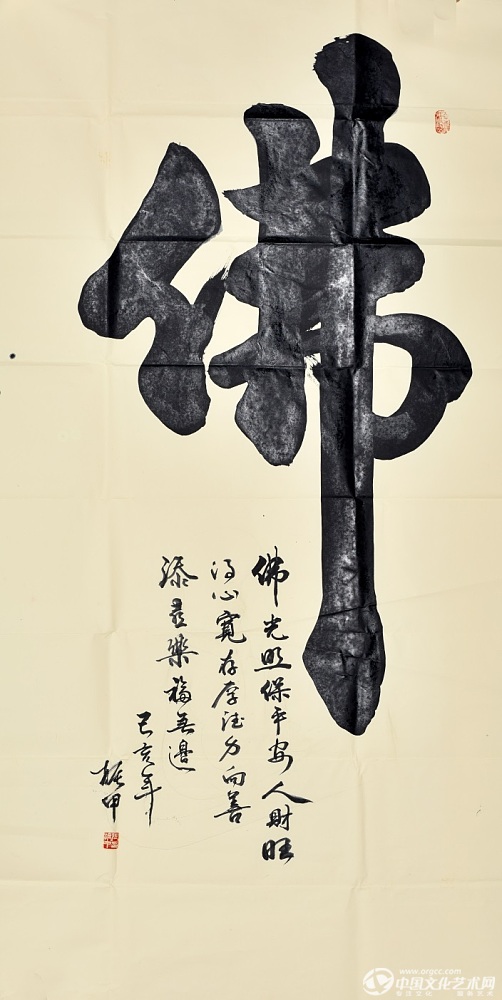 佛
佛光照保平安人財旺
得心寬存厚德向善
添喜樂福無邊
己亥年
振甲
www.orgcc.com
中国文化艺术网